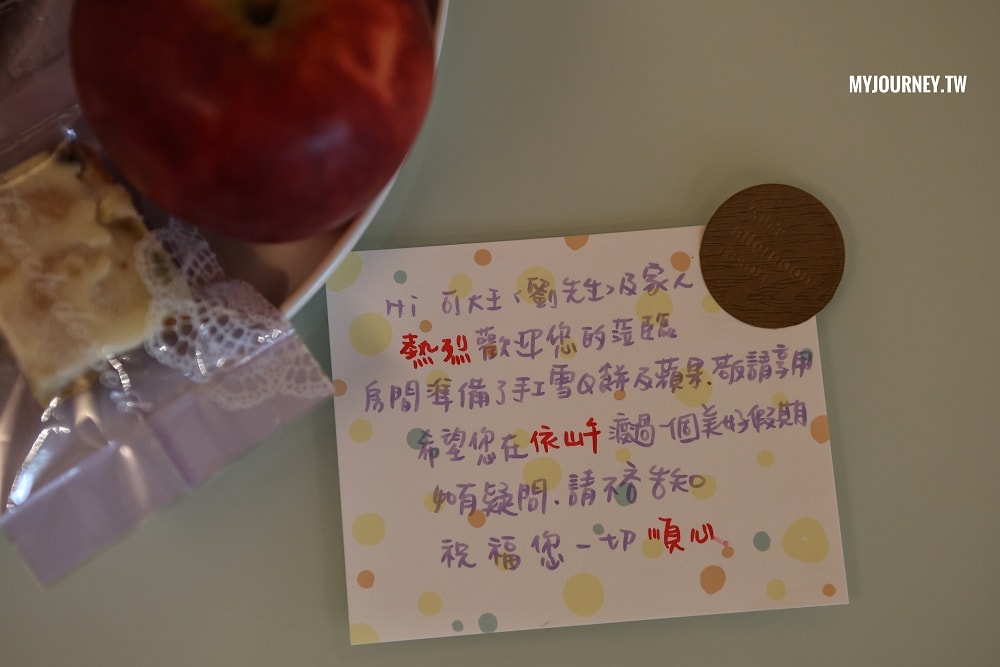 MYJOURNEY.TW
Hi 可大王<劉先生>及家人
熱烈歡迎您的蒞臨
房間準備了手工雪Q餅及蘋果.敬請享用
希望您在依山午渡過一個美好假期
如有疑問.請不吝告知
祝福您一切順心
afternoon